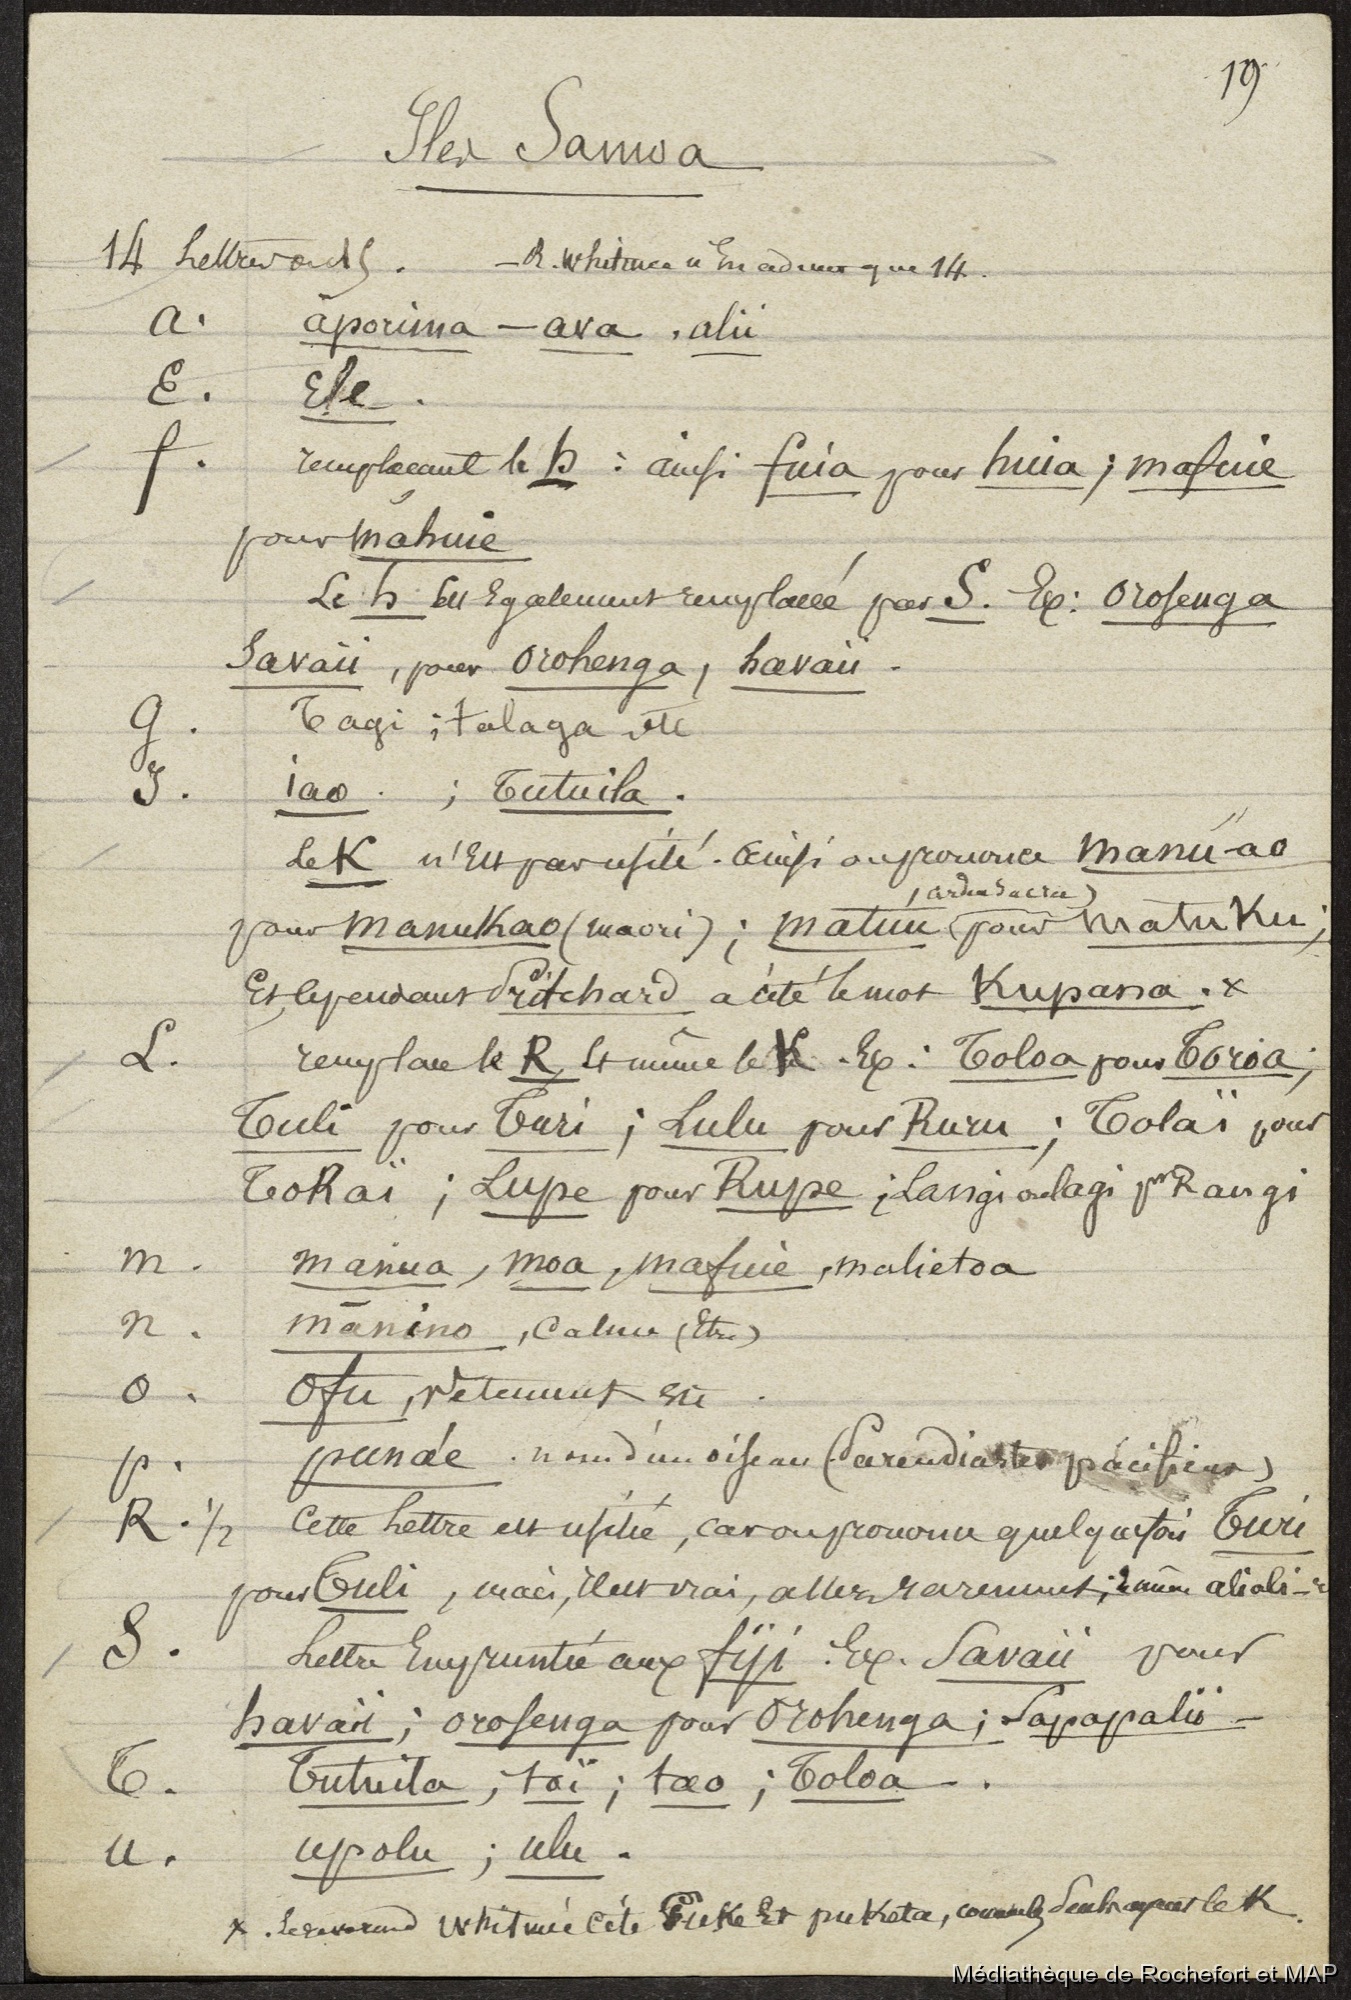 19
Iles Samoa
14 lettres — R. Whitmee n'En admet que 14.
a. āporima — ava, alii
E. Ele.
f. remplacant le h : ainsi fuia pour huia ; mafuie
pour māhuie
Le h Est Egalement remplacé par S. Ex: Orosenga
Savaii, pour Orohenga, havaii.
g. Tagi ; talaga etc
I. iao. ; Tutuila.
Le K n'Est pas usité. Ainsi on prononce Manu-ao
pour ManuKao (maori) ; matuu (ardea sacra) pour MatuKu ;
Et cependant Pritchard a cité le mot Kupana. x
L. remplace le R Et même le K. Ex : Toloa pour Toroa ;
Tuli pour Turi ; Lulu pour Ruru ; Tolaï pour
ToRaï ; Lupe pour Rupe ; Langi ou lagi pr Rangi
m. manua, moa, mafuie, malietoa
n. mānino, calme (Etre)
o. Ofu, vêtement etc.
p. punáe. nom d'un oiseau (Pareudiastes pacificus)
R. 1/2 Cette lettre est usitée, car on prononce quelquefois Turi
pour Tuli, mais, il est vrai, assez rarement ; Et même alioli
S. Lettre Empruntée aux fiji. Ex. Savaii pour
havaii ; orosenga pour Orohenga ; Sapapalii —
T. Tutuila ; taï ; tao ; Toloa —.
u. upolu ; ulu.
x. Le reverend Whitmee cite Puke Et puketa, comme seuls ayant le K.